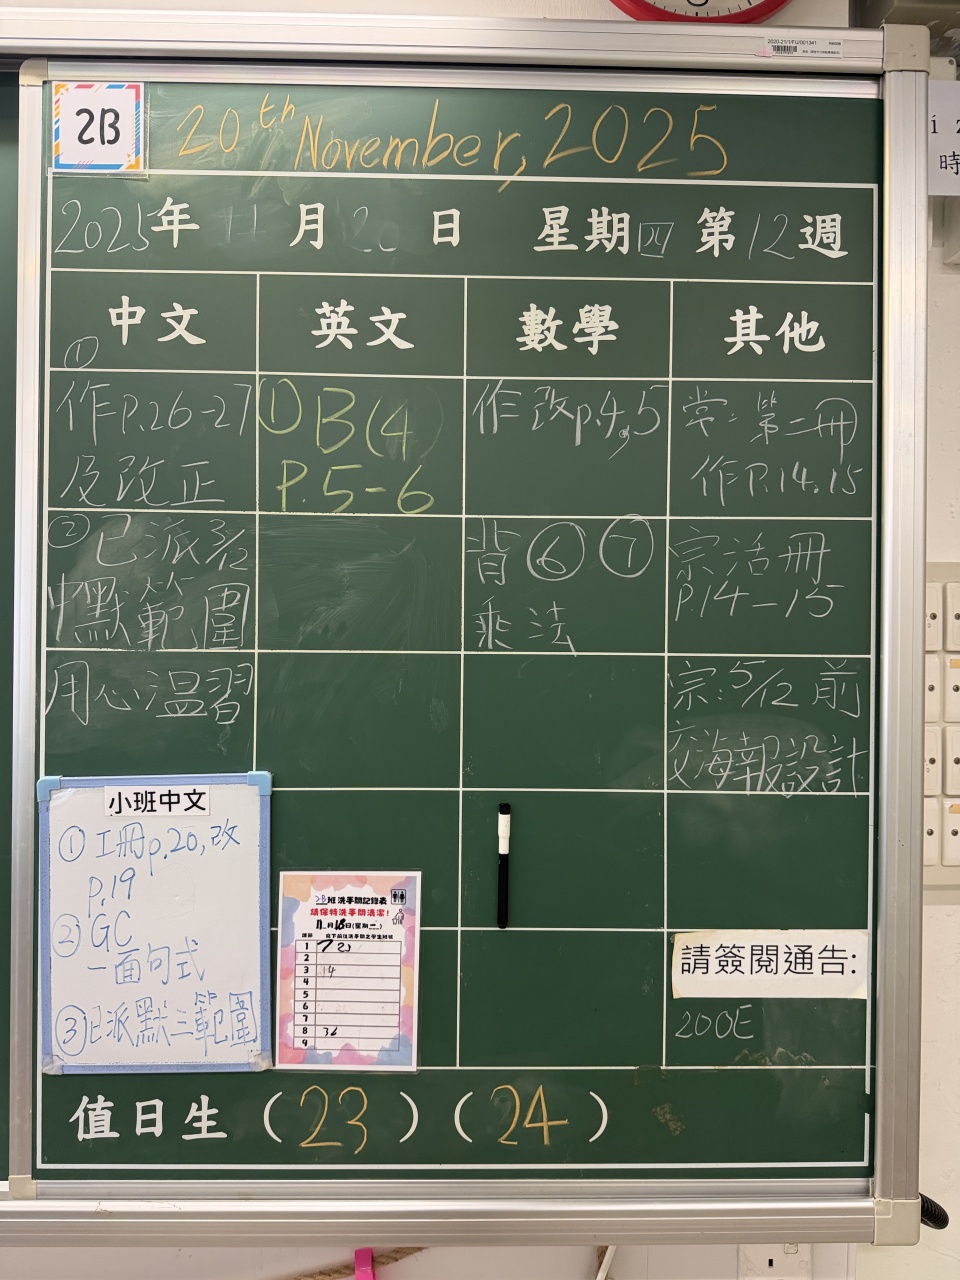 2020-21/1/FU/001341
2B
20th November, 2025
2025年 11月20日 星期四 第12週
中文 英文 數學 其他
① 作P.26-27
及改正
② 已派3/12
中默範圍
用心溫習
① B(4)
P.5-6
作改p.4,5
背⑥⑦
乘法
常:第二冊
作P.14,15
宗活冊
P.14-15
宗:5/12前
交海報設計
小班中文
① 工冊p.20,改
p.19
② GC
一面句式
③ 已派默三範圍
2B班洗手間記錄表
請保持洗手間清潔!
11月18日(星期二)
1 7 23
2
3 14
4
5
6
7
8 36
9
請簽閱通告:
200E
值日生(23)(24)
時